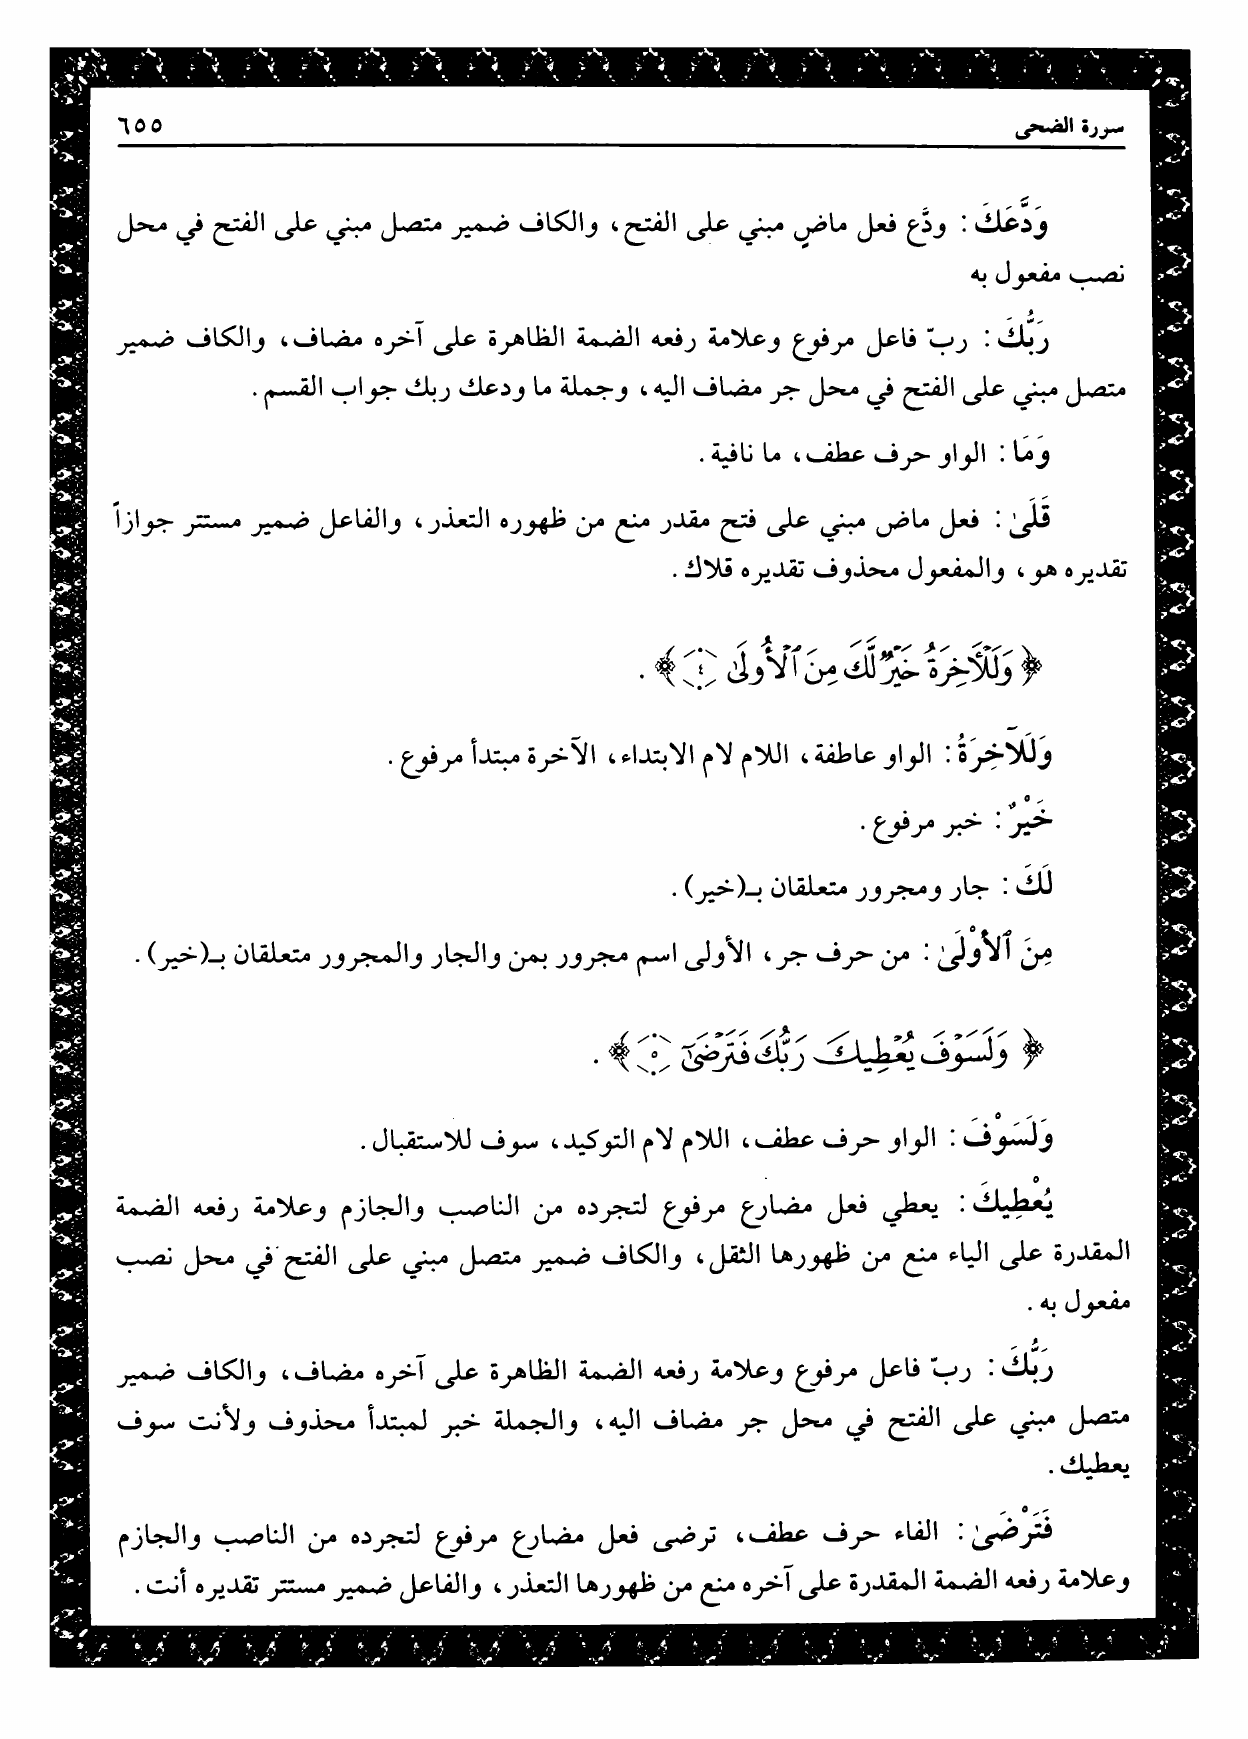 سورة الضحى ٦٥٥
وَدَّعَكَ : ودَّع فعل ماضٍ مبني على الفتح، والكاف ضمير متصل مبني على الفتح في محل
نصب مفعول به
رَبُّكَ : ربّ فاعل مرفوع وعلامة رفعه الضمة الظاهرة على آخره مضاف، والكاف ضمير
متصل مبني على الفتح في محل جر مضاف اليه، وجملة ما ودعك ربك جواب القسم.
وَمَا : الواو حرف عطف، ما نافية.
قَلَىٰ : فعل ماض مبني على فتح مقدر منع من ظهوره التعذر، والفاعل ضمير مستتر جوازاً
تقديره هو، والمفعول محذوف تقديره قلاك.
﴿ وَلَلْأَخِرَةُ خَيْرٌ لَّكَ مِنَ ٱلْأُولَىٰ ٤ ﴾.
وَلَلَآخِرَةُ : الواو عاطفة، اللام لام الابتداء، الآخرة مبتدأ مرفوع.
خَيْرٌ : خبر مرفوع.
لَكَ : جار ومجرور متعلقان بـ(خير).
مِنَ ٱلأوْلَىٰ : من حرف جر، الأولى اسم مجرور بمن والجار والمجرور متعلقان بـ(خير).
﴿ وَلَسَوْفَ يُعْطِيكَ رَبُّكَ فَتَرْضَىٰٓ ٥ ﴾.
وَلَسَوْفَ : الواو حرف عطف، اللام لام التوكيد، سوف للاستقبال.
يُعْطِيكَ : يعطي فعل مضارع مرفوع لتجرده من الناصب والجازم وعلامة رفعه الضمة
المقدرة على الياء منع من ظهورها الثقل، والكاف ضمير متصل مبني على الفتح في محل نصب
مفعول به.
رَبُّكَ : ربّ فاعل مرفوع وعلامة رفعه الضمة الظاهرة على آخره مضاف، والكاف ضمير
متصل مبني على الفتح في محل جر مضاف اليه، والجملة خبر لمبتدأ محذوف ولأنت سوف
يعطيك.
فَتَرْضَىٰ : الفاء حرف عطف، ترضى فعل مضارع مرفوع لتجرده من الناصب والجازم
وعلامة رفعه الضمة المقدرة على آخره منع من ظهورها التعذر، والفاعل ضمير مستتر تقديره أنت.